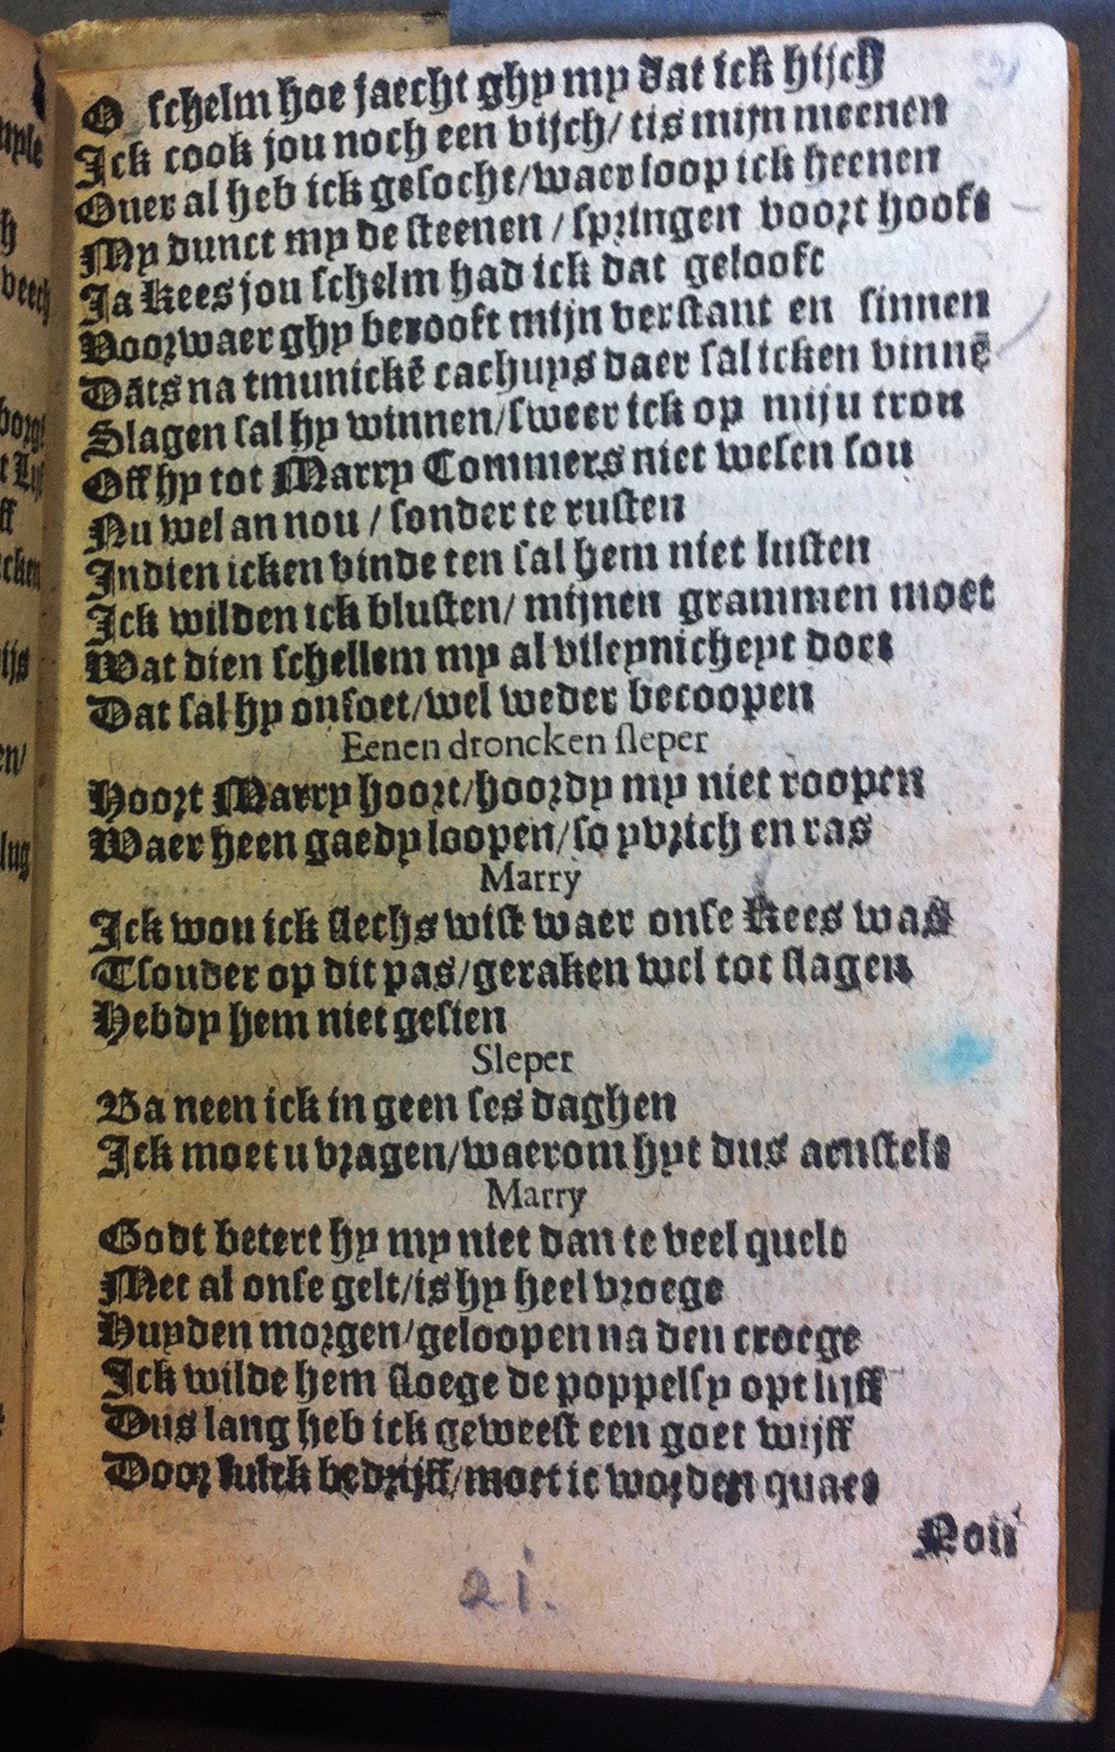 O ſchelm hoe jaecht ghy my dat ick hijch
Ick cook jou noch een vijch/ tis mijn meenen
Ouer al heb ick geſocht/waer loop ick heenen
My dunct my de ſteenen / ſpringen voort hooft
Ja Kees jou ſchelm had ick dat gelooft
Voorwaer ghy berooft mijn verſtant en ſinnen
Dāts na tmunickē cachuys daer ſal icken vinnē
Slagen ſal hy winnen/ſweer ick op miju trou
Off hy tot Marry Commers niet weſen ſou
Nu wel an nou / ſonder te ruſten
Indien icken vinde ten ſal hem niet luſten
Ick wilden ick bluſten/ mijnen grammen moet
Wat dien ſchellem my al vileynicheyt doet
Dat ſal hy onſoet/wel weder becoopen
Eenen droncken ſleper
Hoort Marry hoort/hoordy my niet roopen
Waer heen gaedy loopen/ſo yvrich en ras
Marry
Ick wou ick ſlechs wiſt waer onſe Kees was
Tſouder op dit pas/geraken wel tot ſlagen
Hebdy hem niet geſien
Sleper
Ba neen ick in geen ſes daghen
Ick moet u vragen/waerom hyt dus aenſtelt
Marry
Godt betert hy my niet dan te veel quelt
Met al onſe gelt/is hy heel vroege
Huyden morgen/geloopen na den croege
Ick wilde hem ſloege de poppelſy opt lijff
Dus lang heb ick geweeſt een goet wijff
Door ſulck bedrijff/moet ic worden quaet
Noit
21.